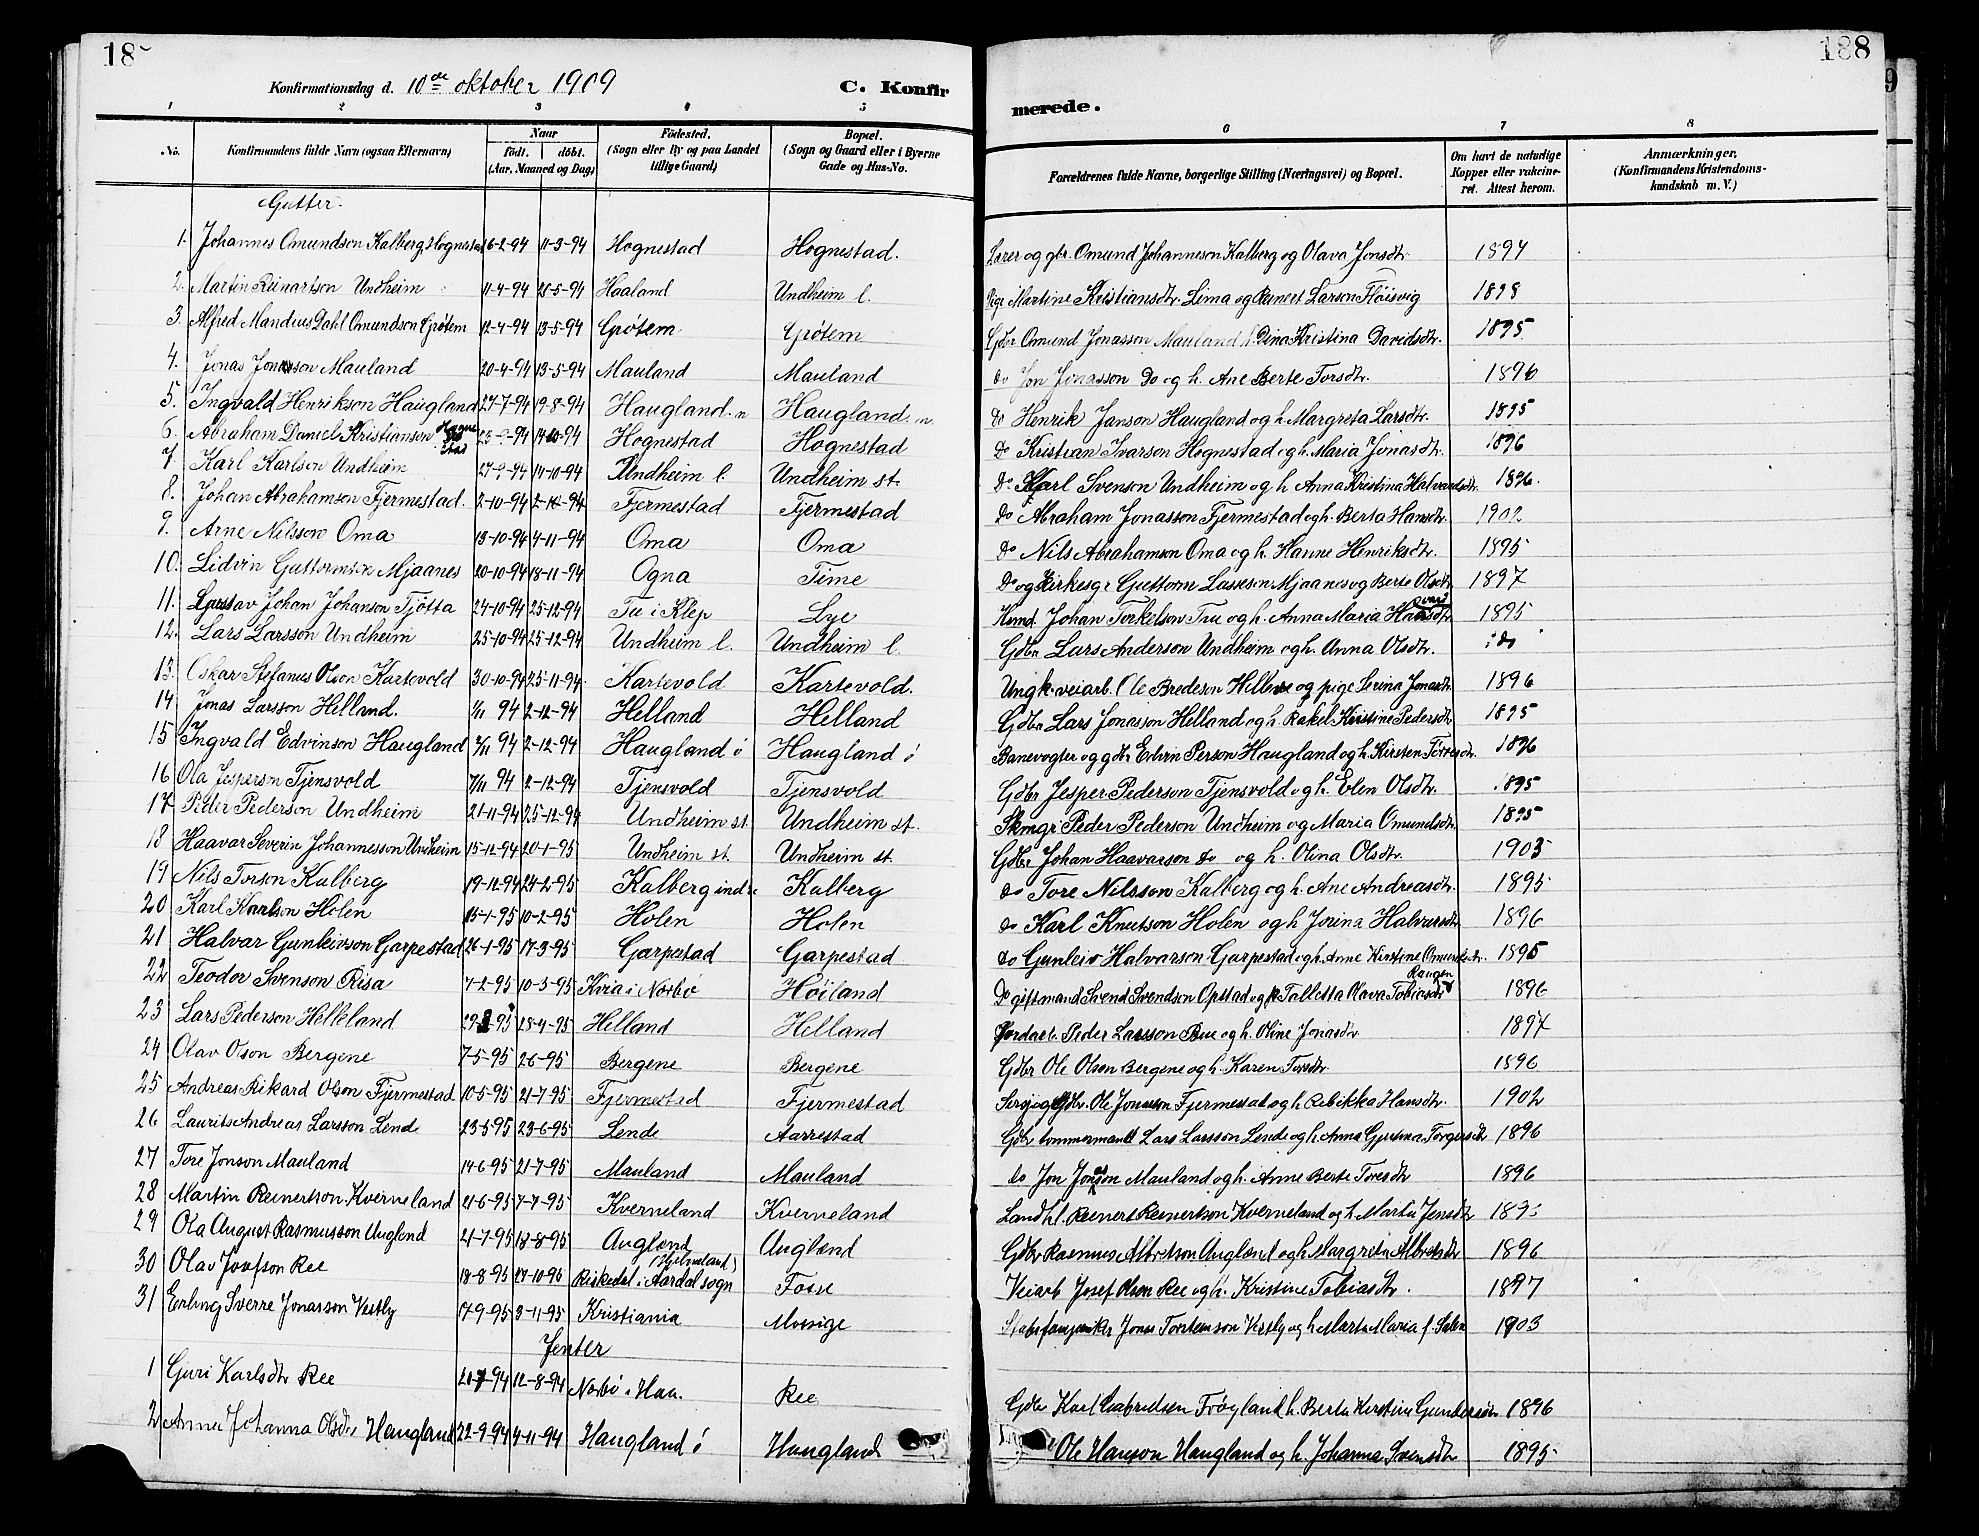 18
188
9
Konfirmationsdag d. 10de oktober 1909
C. Konfirmerede.
1 2 3 4 5 6 7 8
No. Konfirmandens fulde Navn (ogsaa Efternavn) Naar født. døbt. (Aar, Maaned og Dag) Fødested. (Sogn eller By og paa Landet tillige Gaard) Bopæl. (Sogn og Gaard eller i Byerne Gade og Hus-No. Forældrenes fulde Navne, borgerlige Stilling (Næringsvei) og Bopæl. Om havt de naturlige Kopper eller vakcineret. Attest herom. Anmærkninger. (Konfirmandens Kristendomskundskab m. V.)
Gutter.
1. Johannes Omundson Kalberg, Hognestad 16-2-94 11-3-94 Hognestad Hognestad. Lærer og gbr. Omund Johanneson Kalberg og Olava Jonsdtr. 1894
2. Martin Reinartson Undheim 11-4-94 25-5-94 Haaland Undheim l. Pige Martine Kristiansdtr. Lima og Reineet Larson Fløisvig 1898
3. Alfred Mandius Dahl Omundson Grøtem 12-4-94 13-5-94 Grøtem Grøtem Gdbr Omund Jonasson Mauland h. Dina Kristina Davidsdtr. 1895
4. Jonas Jonasson Mauland 20-4-94 13-5-94 Mauland Mauland do Jon Jonasson Do og h. Ane Berte Torsdtr. 1896
5. Ingvald Henrikson Haugland 27-7-94 19-8-94 Haugland. n Haugland. n. do Henrik Janson Haugland og h Margreta Larsdtr. 1895
6. Abraham Daniel Kristianson Hognestad 23-9-94 14-10-94 Hognestad Hognestad do Kristian Ivarson Hognestad og h. Maria Jonasdtr. 1896
7. Karl Karlson Undheim 27-9-94 14-10-94 Undheim l. Undheim st. Do. Karl Svenson Undheim og h Anna Kristina Halvardsdtr. 1896.
8. Johan Abrahamson Fjermestad. 2-10-94 2-12-94 Fjermestad Fjermestad do Abraham Jonasson Fjermestad og h. Berta Hansdtr. 1902
9. Arne Nilsson Oma 13-10-94 4-11-94 Oma Oma do Nils Abrahamson Oma og h. Hanne Henriksdtr. 1895
10. Lidvin Guttormsen Mjaanes 20-10-94 18-11-94 Ogna Time Do og Kirkesgr Guttorm Lasseson Mjaanes og Berte Olsdtr. 1897
11. Gustav Johan Johanson Tjøtta 24-10-94 25-12-94 Tu i Klep Lye Johan Torkelson Tru og h. Anna Maria 1895
12. Lars Larsson Undheim 25-10-94 25-12-94 Undheim l. Undheim l. Gdbr Lars Anderson Undheim og h. Anna Olsdtr. do
13. Oskar Stefanus Olson Kartevold 30-10-94 25-11-94 Kartevold Kartevold. Ungk. veiarb. Ole Bredeson Hillevæ og pige Serina Jonasdtr. 1896
14 Jonas Larsson Helland. 1/11 94 2-12-94 Helland Helland Gdbr Lars Jonasson Helland og h. Rakel Kristine Pedersdtr 1895
15 Ingvald Edvinson Haugland 2/11 94 2-12-94 Haugland ø Haugland ø Banevogter og gdbr Edvin Person Haugland og h. Kirsten Torresdtr. 1896
16 Ola Jesperson Tjensvold 7/11 94 2-12-94 Tjensvold Tjensvold Gdbr Jesper Pederson Tjensvold og h. Elen Olsdtr. 1895
17 Peder Pederson Undheim 21-11-94 25-12-94 Undheim st. Undheim st. Peder Pederson Undheim og Maria Omundsdtr. 1895
18 Haavar Severin Johannesson Undheim 15-12-94 20-1-95 Undheim st. Undheim st. Gdbr Johan Haavarson do og h. Olina Olsdtr. 1903
19 Nils Torson Kalberg 19-12-94 24-2-95 Kalberg indre Kalberg do Tore Nilsson Kalberg og h. Ane Andreasdtr. 1895
20 Karl Karlson Holen 15-1-95 10-2-95 Holen Holen do Karl Knutson Holen og h Jorina Halvarsdtr 1896
21 Halvar Gunleivson Garpestad 26-1-95 17-3-95 Garpestad Garpestad do Gunleiv Halvarson Garpestad og h. Anne Kirstine Omundsdtr. 1895
22 Teodor Svenson Risa 7-2-95 10-3-95 Kvia i Nærbø Høiland do giftmand Svend Svendson Opstad og p Talletta Olava Tobiasdtr 1896
23 Lars Pederson Helleland 28-4-95 Helland Helland Jordarb. Peder Larsson Bue og h. Oline Jonasdtr 1897
24 Olav Olson Bergene 7-5-95 2-6-95 Bergene Bergene Gdbr Ole Olson Bergene og h. Karen Torsdtr 1896
25 Andreas Rikard Olson Fjermestad 10-5-95 21-7-95 Fjermestad Fjermestad Gdbr. Ole Jonasson Fjermestad og h Rebikka Hansdtr. 1902
26 Laurits Andreas Larsson Lende 23-5 95 23-6-95 Lende Aarrestad Gdbr tømmermand Lars Larsson Lende og h. Anna Gurina Torgersdtr 1896
27 Tore Jonson Mauland 14-6-95 21-7-95 Mauland Mauland do Jon Jonasson Mauland og h. Anne Berte Toresdtr 1896
28 Martin Reinertson Kverneland 21-6-95 7-7-95 Kverneland Kverneland Landhl. Reinert Reinertson Kverneland og h. Marta Jensdtr 189
29 Ola August Rasmusson Auglend 21-7-95 18-8-95 Auglend Auglend Gdbr Rasmus Albretson Auglend og h Margreta Albretsdtr 1896
30 Olav Josefson Ree 18-8-95 27-10-95 Riskedal i Aardal sogn (Hjelmeland) Fosse Veiarb Josef Olson Ree og h. Kristine Tobiasdtr. 1897
31 Erling Sverre Jonasson Vestly 17-9-95 3-11-95 Kristiania Mossige Jonas Torstenson Vestly og h Marta Maria f. 1903
Jenter
1 Guri Karlsdtr Ree 20-7-94 12-8-94 Nærbø i Haa. Ree Gdbr Karl Gabrielsen Frøyland h. Berta Kirstine Gundersdtr 1896
2 Anna Johanna Olsdtr Haugland 22-9-94 4-11-94 Haugland ø Haugland Ole Hanson Haugland og h. Johanna Svensdtr 1895